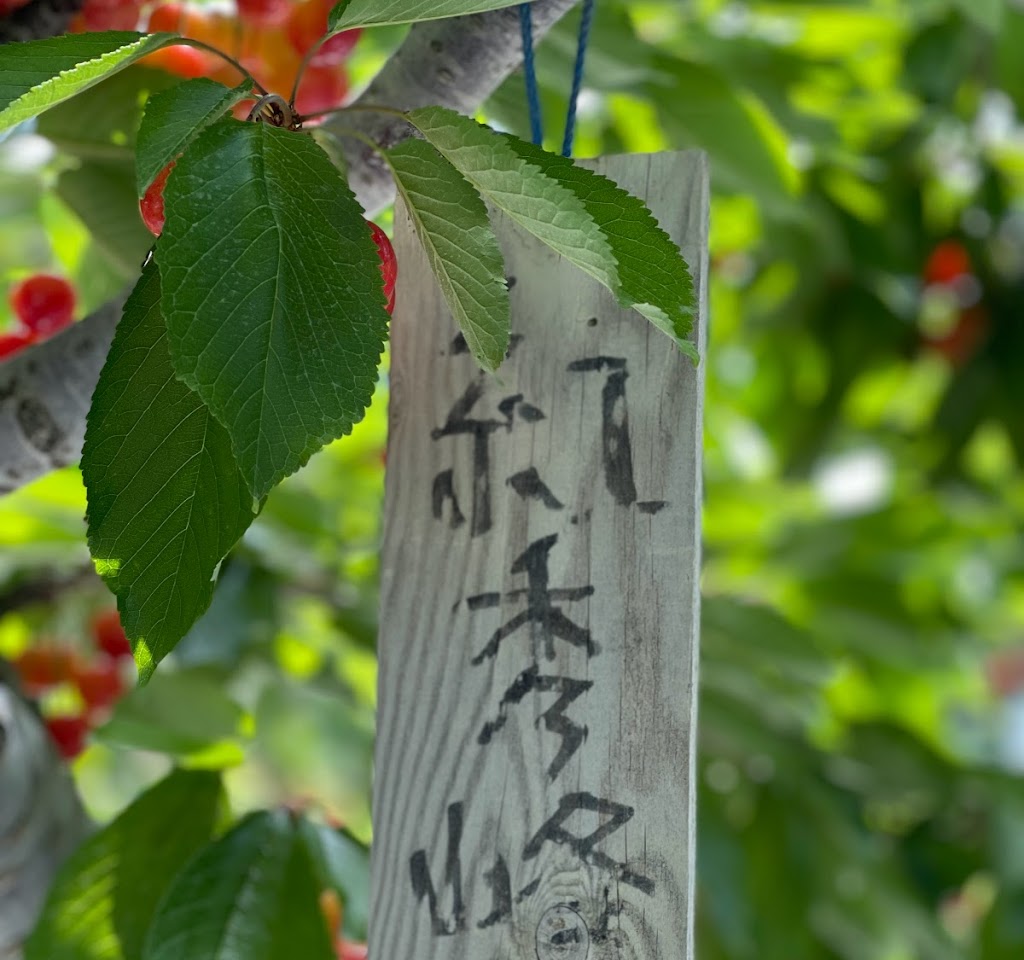 紅秀峰